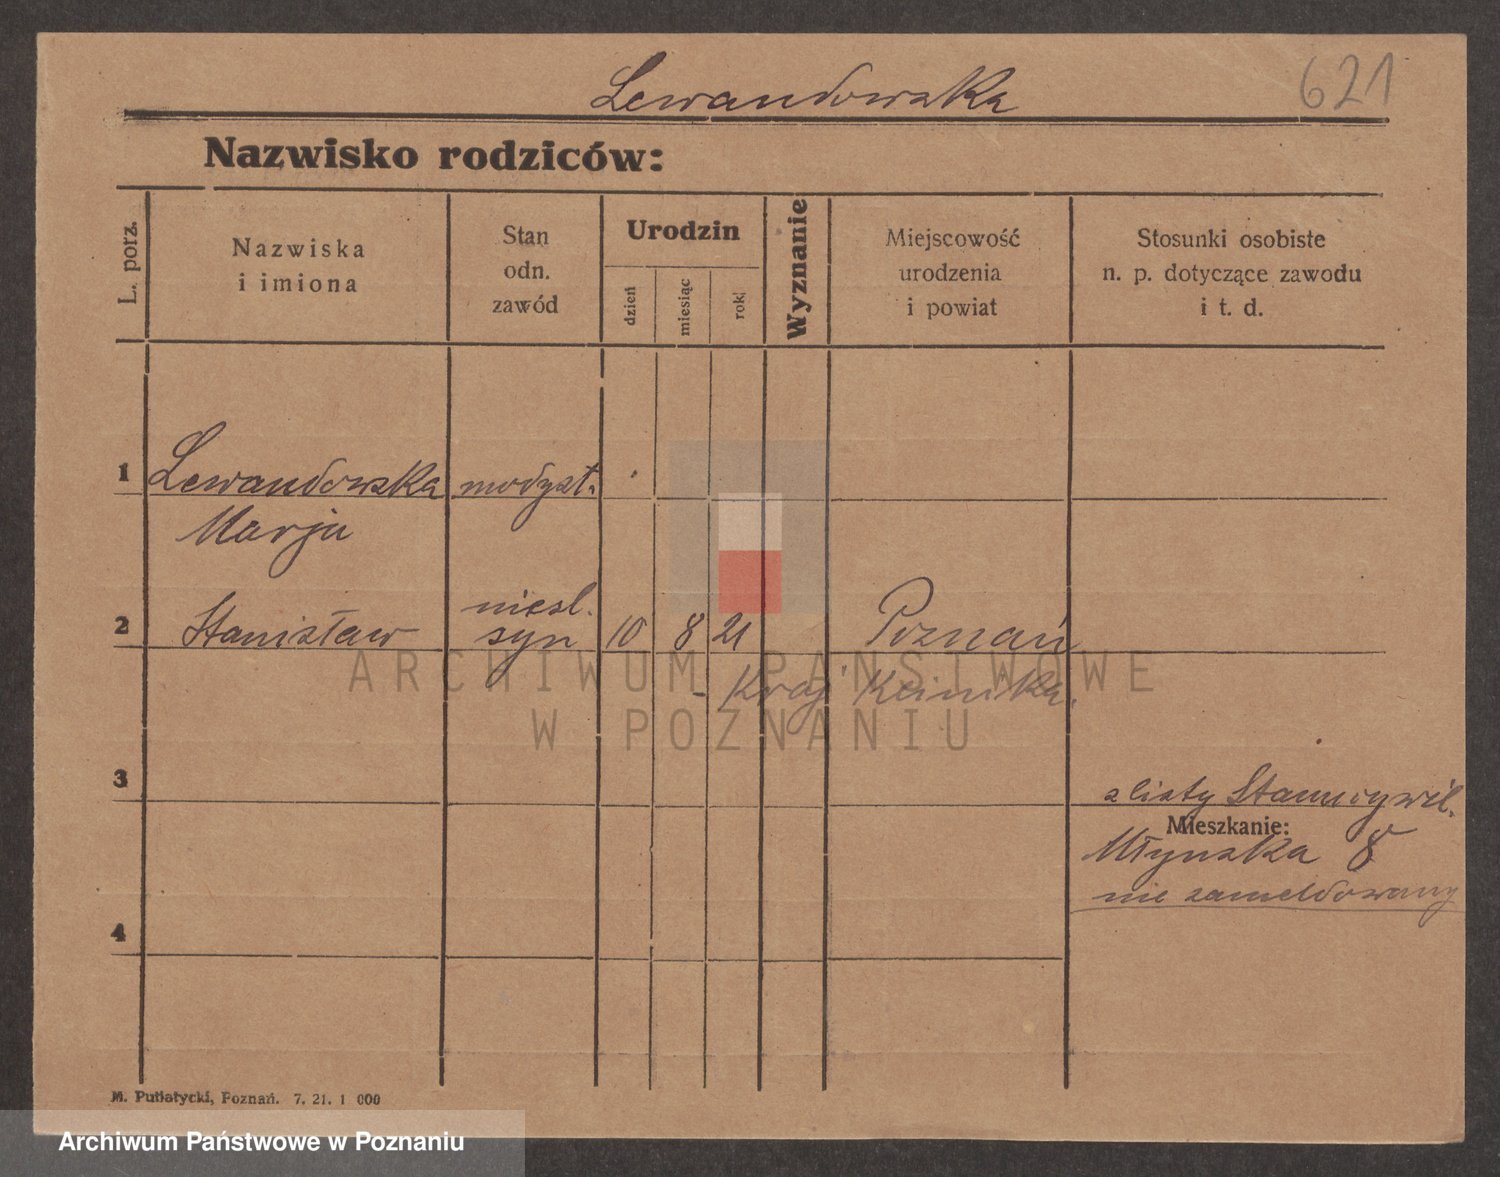 Lewandowska
621
Nazwisko rodziców:
L. porz.
Nazwiska
i imiona
Stan
odn.
zawód
Urodzin
dzień
miesiąc
rok
Wyznanie
Miejscowość
urodzenia
i powiat
Stosunki osobiste
n. p. dotyczące zawodu
i t. d.
1 Lewandowska modyst.
Marja
2 Stanisław niesl. syn 10 8 21 Poznań
- Kraj Klinika.
3
z listy Stanu cywil.
Mieszkanie:
Młynska 8
nie zameldowany
4
M. Putiatycki, Poznań. 7. 21. 1 000
ARCHIWUM PAŃSTWOWE
W POZNANIU
Archiwum Państwowe w Poznaniu